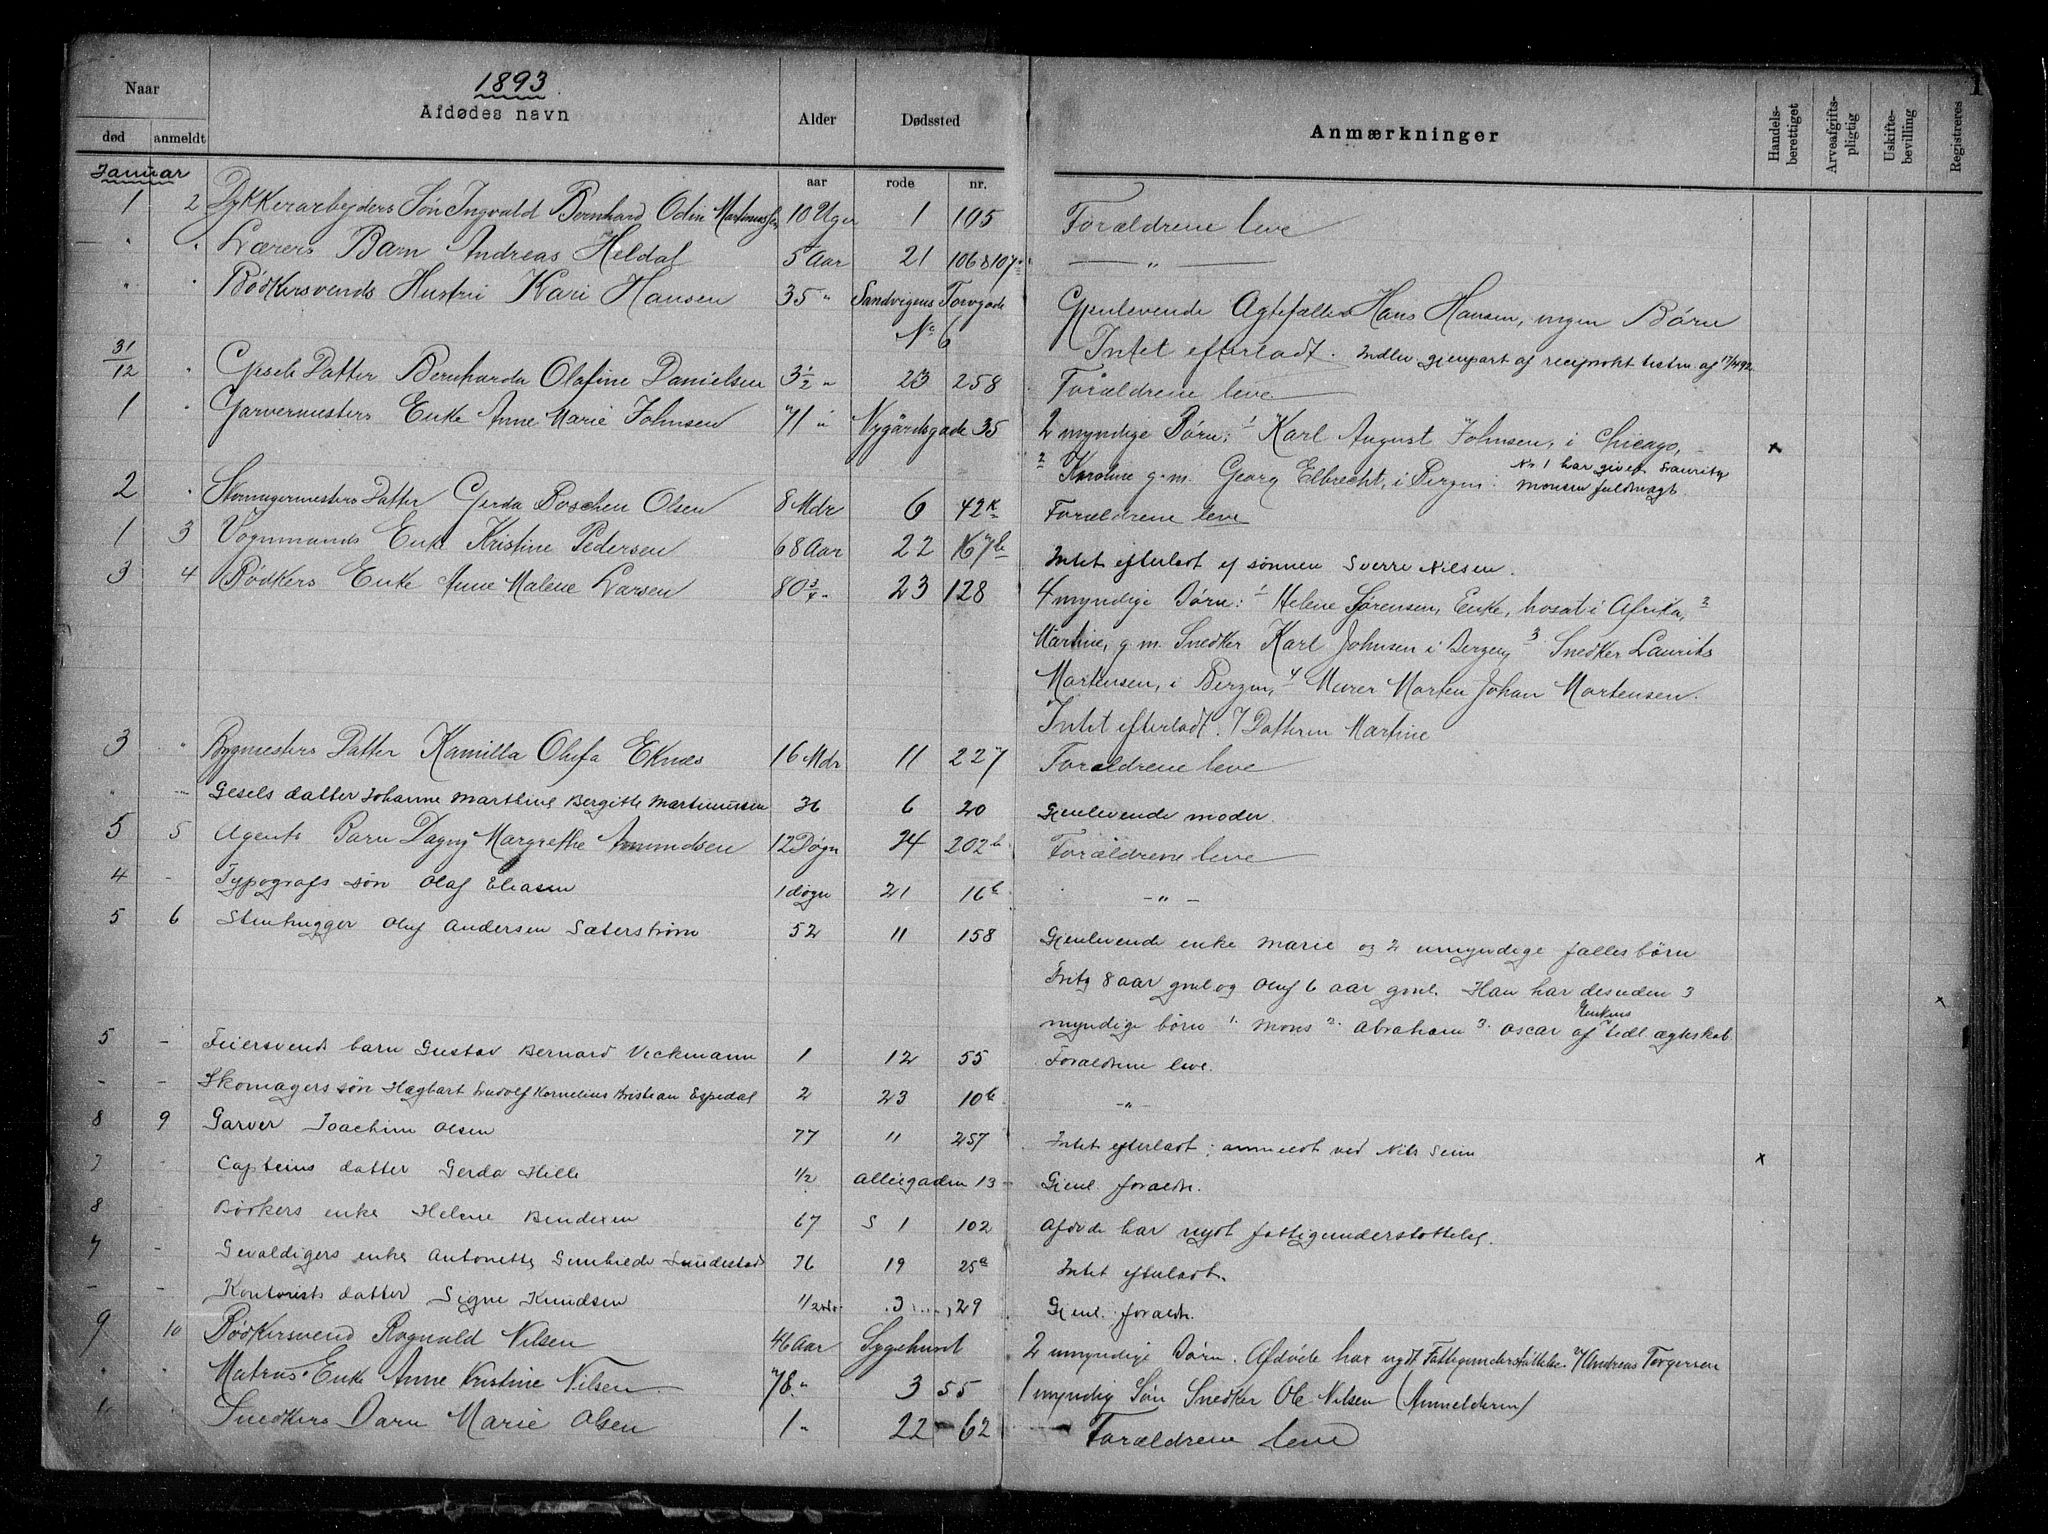 1893
Naar
Afdødes navn
Alder
Dødssted
Anmærkninger
Handels-berettiget
Arveafgifts-pligtig
Uskifte-bevilling
Registreres
1
død anmeldt
aar rode nr.
Januar
1 2 Dykkerarbejders Søn Ingvald Bernhard Odin 10 Uger 1 105 Forældrene leve
" " Lærers Barn Andreas Heldal 5 Aar 21 106 & 107 — " —
" " Bødkersvends Hustru Kari Hansen 35 " Sandvigens Torvgade Gjenlevende Agtefælle Hans Hansen, ingen Børn
No 6 Intet efterladt. Indlev. gjenpart af reciprokt testm. af
31/12 " Gesels Datter Bernharda Olafine Danielsen 3 1/2 " 23 258 Forældrene leve
1 " Garvermesters Enke Anne Marie Johnsen 71 " Nygårdsgade 35 2 myndige Børn: 1 Karl August Johnsen, i Chicago, x
2 Karoline g. m. Georg Elbrecht, i Bergen. No 1 har given Lauritz Monsen fuldmagt.
2 " Skomagermesters Datter Gerda Boschen Olsen 8 Mdr 6 42k Forældrene leve
1 3 Vognmands Enke Kristine Pedersen 68 Aar 22 Intet efterladt ef sønnen Sverre Nilsen.
3 4 Bødkers Enke Anne Malene Larsen 80 3/4 " 23 128 4 myndige Børn: 1 Helene Sørensen, Enke, bosat i Afrika, 2
Martine, g. m. Snedker Karl Johnsen i Bergen, 3 Snedker Laurits
Martensen, i Bergen, 4 Murer Morten Johan Mortensen.
Intet efterladt. / Datteren Martine
3 " Bygmesters Datter Kamilla Olufa Eknæs 16 Mdr 11 227 Forældrene leve
" - Gesels datter Johanne Marthine Bergitte Martinussen 36 6 20 Gjenlevende moder.
5 5 Agents Barn Dagny Margrethe Amundsen 12 Døgn 24 202b Forældrene leve
4 - Typografs søn Olaf Eliasen 1 døgn 21 16b - " -
5 6 Stenhugger Oluf Andersen Sæterstrøm 52 11 158 Gjenlevende enke Marie og 2 umyndige fælles børn
Fritz 8 aar gml og Oluf 6 aar gml. Han har desuden 3
myndige børn 1. Mons 2. Abraham 3. Oscar af Enkens tidl. ægteskab x
5 - Feiersvends barn Gustav Bernard Veckmann 1 12 55 Forældrene leve.
- - Skomagers søn Hagbart Ludolf Kornelius Kristian Espedal 2 23 10b - " -
8 9 Garver Joachim Olsen 77 11 257 Intet efterladt; anmeldt ved Nils Seim x
7 - Capteins datter Gerda Helle 1/2 Alleegaden 13 Gjenl. forældr.
8 - Bødkers enke Helene Bendixen 67 S 1 102 Afdøde har nydt fattigunderstøttelse.
7 - Gevaldigers enke Antonette Sundestad 76 19 25a Intet efterladt.
- - Kontorists datter Signe Knudsen 1/2 3 29 Gjenl. forældr.
9 10 Bødkersvend Rognvald Nilsen 46 Aar Sygehuset 2 umyndige Børn. Afdøde har nydt Fattigunderstøttelse. Andreas Torgersen
" " Matros Enke Anne Kristine Nilsen 78 " 3 55 1 myndig Søn Snedker Ole Nilsen (Anmelderen)
" Snedkers Barn Marie Olsen 1 " 22 62 Forældrene leve